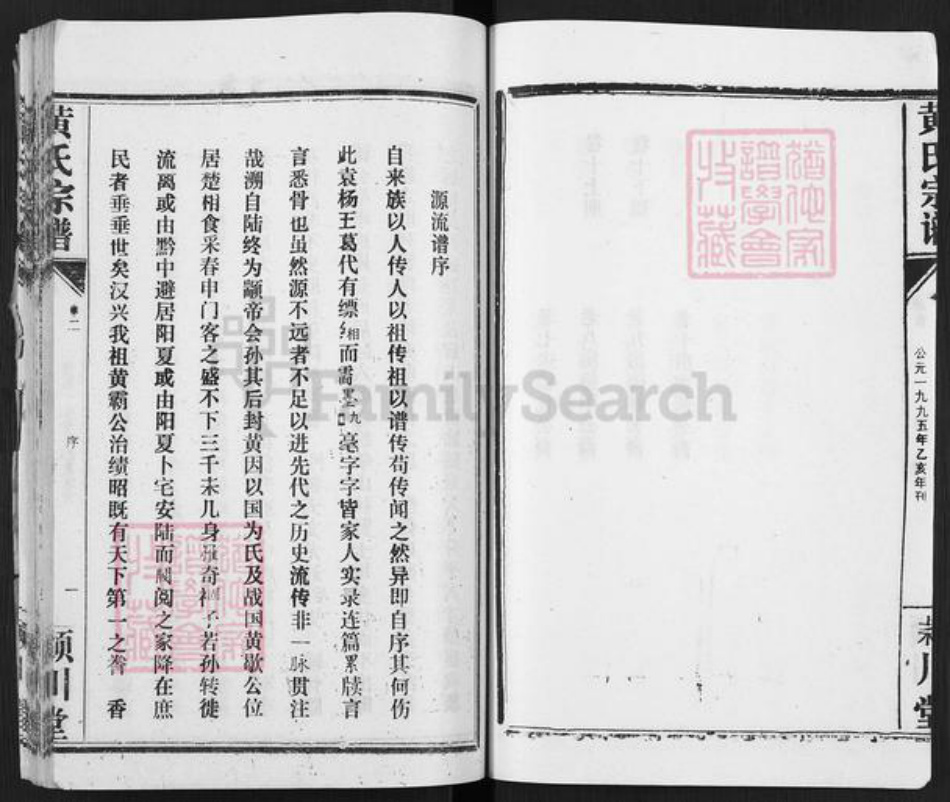 黄氏宗谱
公元一九九五年乙亥年刊
川堂
犹他家
谱学会
收藏
源流谱序
自来族以人传人以祖传祖以谱传苟传闻之然异即自序其何伤
此袁杨王葛代有缥缃而霭墨九毫字字皆家人实录连篇累牍言
言悉骨也虽然源不远者不足以进先代之历史流传非一脉贯注
哉溯自陆终为颛帝会孙其后封黄因以国为氏及战国黄歇公位
居楚相食采春申门客之盛不下三千未几身罹奇祸子若孙转徙
流离或由黔中避居阳夏或由阳夏卜宅安陆而阀阅之家降在庶
民者垂垂世矣汉兴我祖黄霸公治绩昭既有天下第一之誉 香
黄氏宗谱
卷二
序
一
颍川堂
FamilySearch